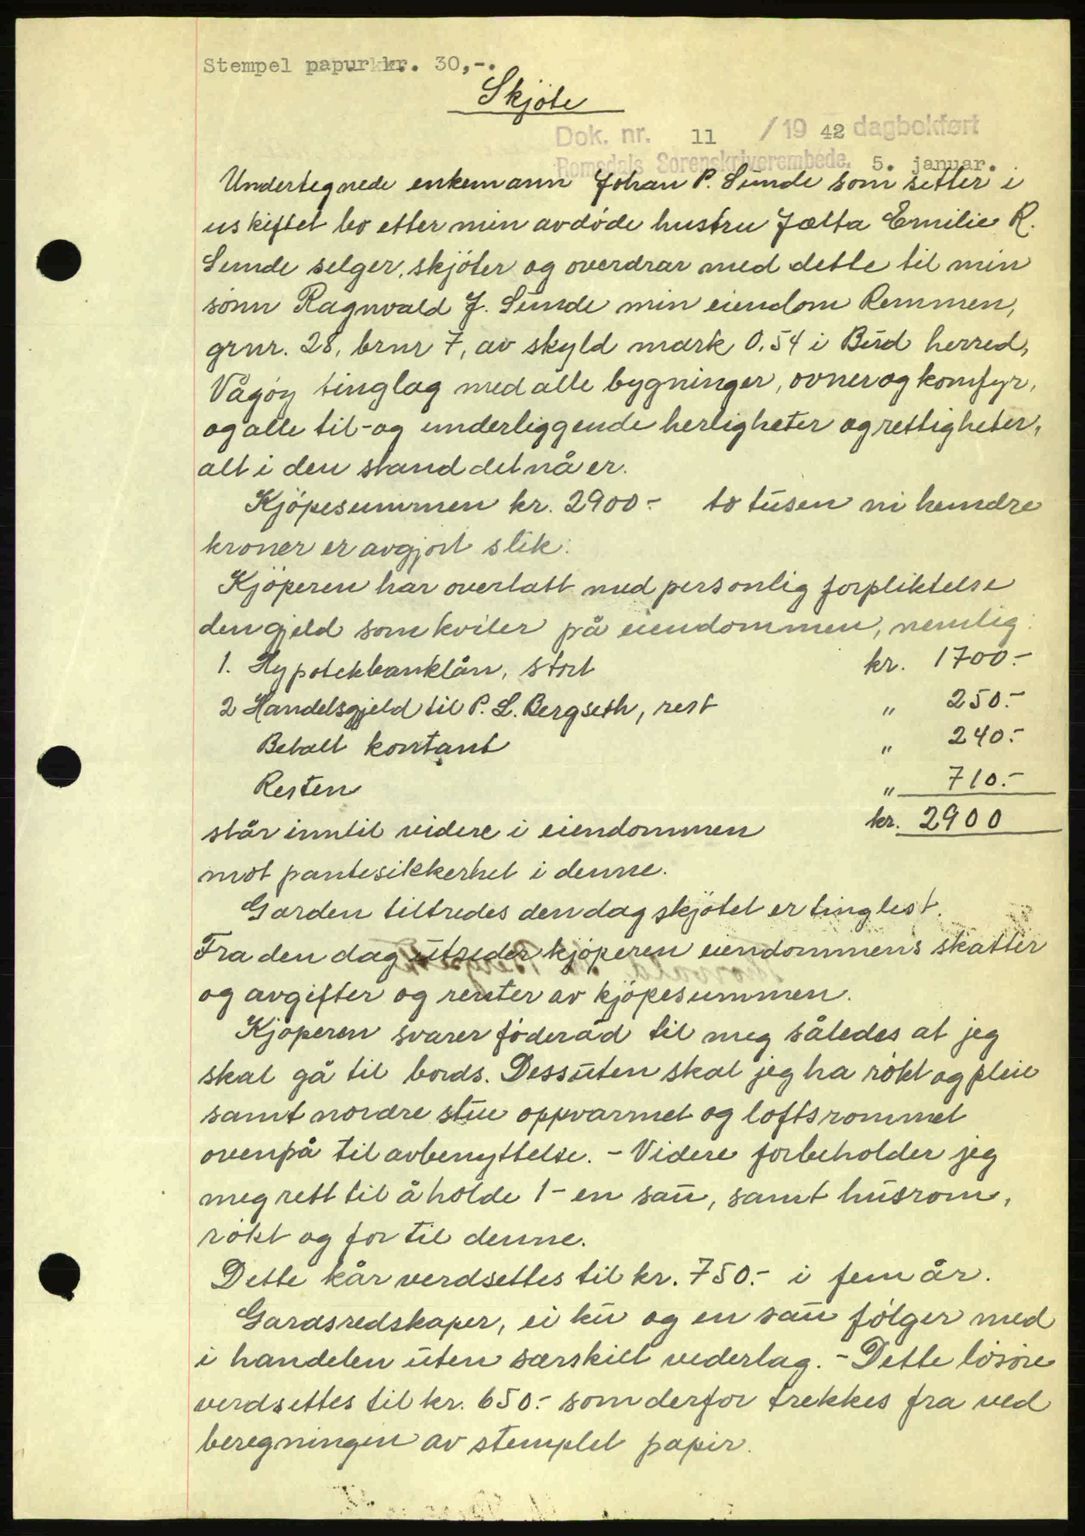 Stempel papur kr. 30,-.
Skjöte
Dok. nr. 11 /19 42 dagbokført
Romsdals Sorenskriverembede, 5. januar.
Undertegnede enkemann Johan P. Sunde som sitter i
uskiftet bo etter min avdøde hustru Jætta Emilie R.
Sunde selger, skjöter og overdrar med dette til min
sönn Ragnvald J. Sunde min eiendom Remmen,
grnr. 28, brnr 7, av skyld mark 0,54 i Bud herred,
Vågöy tinglag med alle bygninger, ovner og komfyr,
og alle til- og underliggende herligheter og rettigheter,
alt i den stand det nå er.
Kjöpesummen kr. 2900.- to tusen ni hundre
kroner er avgjort slik:
Kjöperen har overtatt med personlig forpliktelse
den gjeld som kviler på eiendommen, nemlig:
1. Hypotekbanklån, stort kr. 1700.-
2 Handelsgjeld til P. L. Bergseth, rest " 250.-
Betalt kontant " 240.-
Resten " 710.-
står inntil videre i eiendommen kr. 2900
mot pantesikkerhet i denne.
Garden tiltredes den dag skjötet er tinglest.
Fra den dag utreder kjöperen eiendommens skatter
og avgifter og renter av kjöpesummen.
Kjöperen svarer föderåd til meg således at jeg
skal gå til bords. Dessuten skal jeg ha rökt og pleie
samt nordre stue oppvarmet og loftsrommet
ovenpå til avbenyttelse. - Videre forbeholder jeg
meg rett til å holde 1- en sau, samt husrom,
rökt og for til denne.
Dette kår verdsettes til kr. 750.- i fem år.
Gardsredskaper, ei ku og en sau fölger med
i handelen uten særskilt vederlag. - Dette lösöre
verdsettes til kr. 650.- som derfor trekkes fra ved
beregningen av stemplet papir.